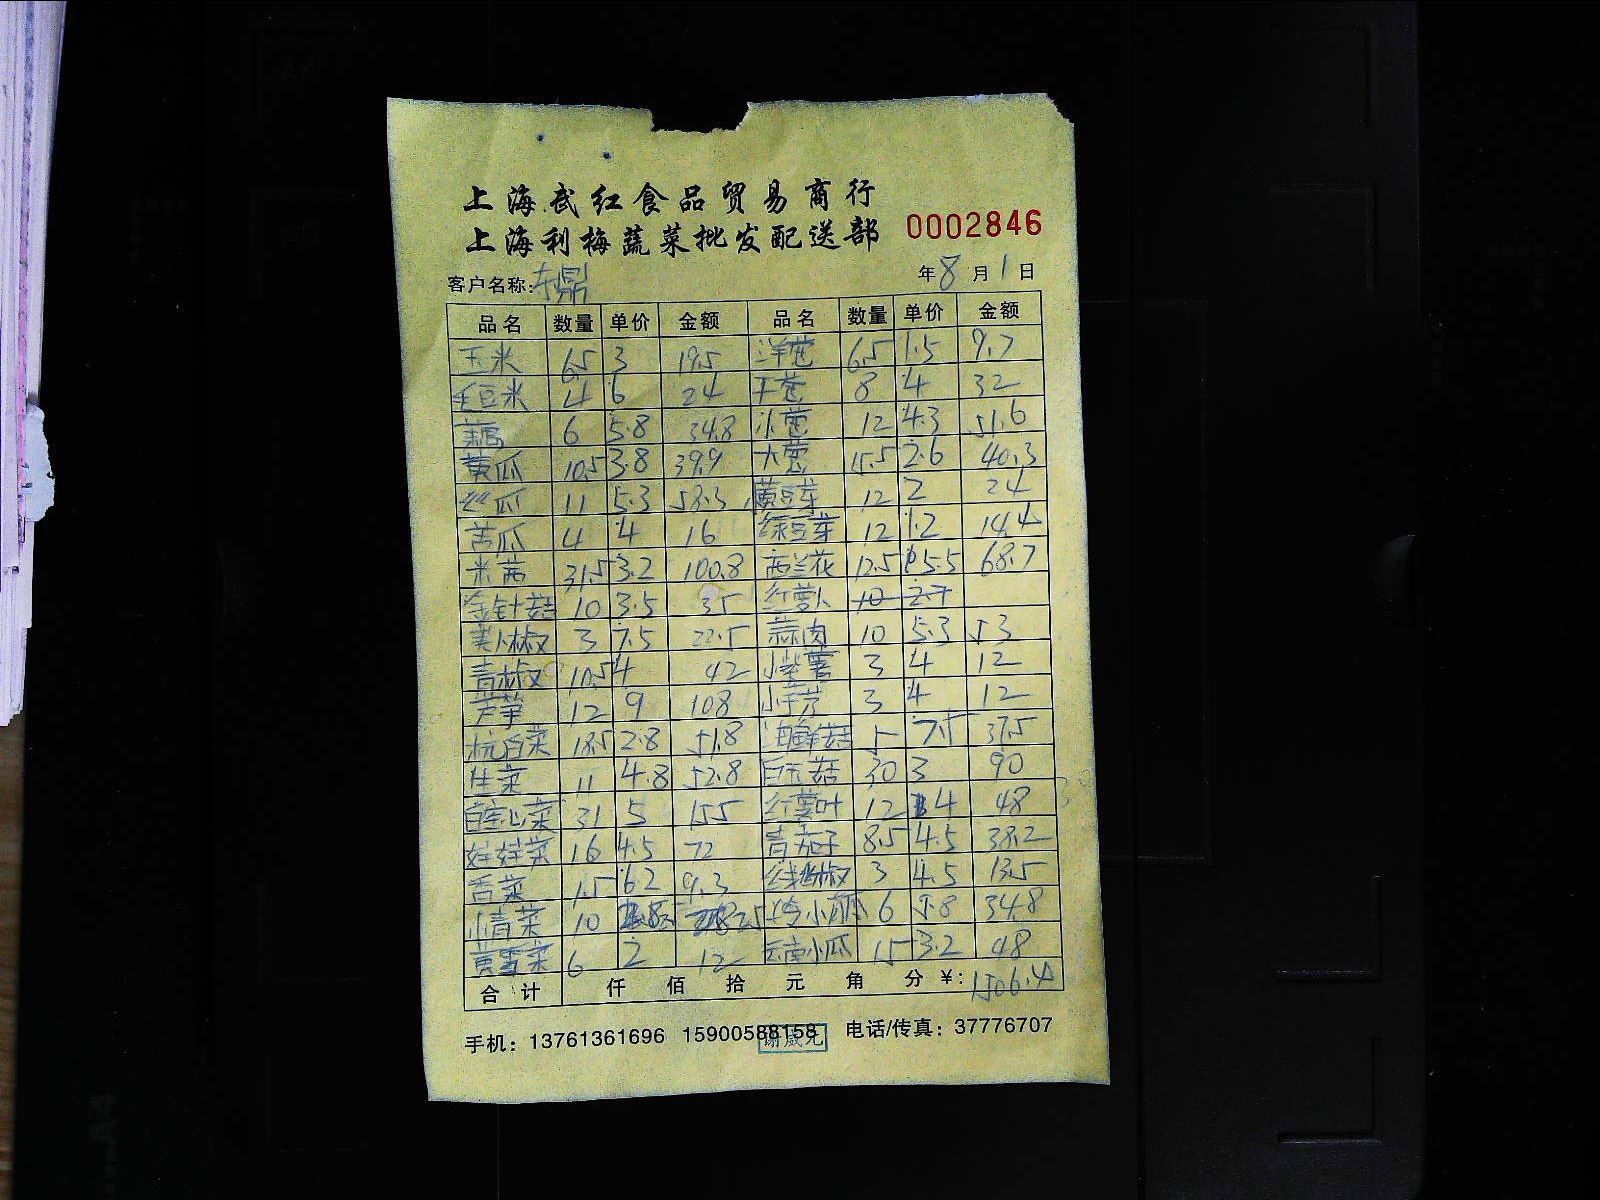 上海武红食品贸易商行
上海利梅蔬菜批发配送部 0002846
客户名称: 鼎 年8月1日
品名 数量 单价 金额 品名 数量 单价 金额
玉米 6.5 3 19.5 洋葱 6.5 1.5 9.7
毛豆米 4 6 24 干葱 8 4 32
藕 6 5.8 34.8 小葱 12 4.3 51.6
黄瓜 10.5 3.8 39.9 大葱 15.5 2.6 40.3
丝瓜 11 5.3 58.3 黄豆芽 12 2 24
苦瓜 4 4 16 绿豆芽 12 1.2 14.4
米茜 31.5 3.2 100.8 西兰花 12.5 5.5 68.7
金针菇 10 3.5 35 红萝卜 10 2.7
美人椒 3 7.5 22.5 蒜肉 10 5.3 53
青椒 10.5 4 42 小紫薯 3 4 12
芦笋 12 9 108 小芋艿 3 4 12
杭白菜 18.5 2.8 51.8 海鲜菇 5 7.5 37.5
生菜 11 4.8 52.8 白玉菇 30 3 90
空心菜 31 5 155 红薯叶 12 4 48
娃娃菜 16 4.5 72 青茄子 8.5 4.5 38.2
香菜 1.5 6.2 9.3 线椒 3 4.5 13.5
小青菜 10 25 小南瓜 6 5.8 34.8
黄雪菜 6 2 12 云南小瓜 15 3.2 48
合计 仟 佰 拾 元 角 分 ¥: 1506.4
手机: 13761361696 15900588158 电话/传真: 37776707